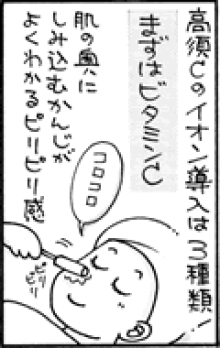 高須Cのイオン導入は3種類!
まずはビタミンC
肌の奥に
しみ込むかんじが
よくわかるピリピリ感
コロコロ
ピリ
ピリ